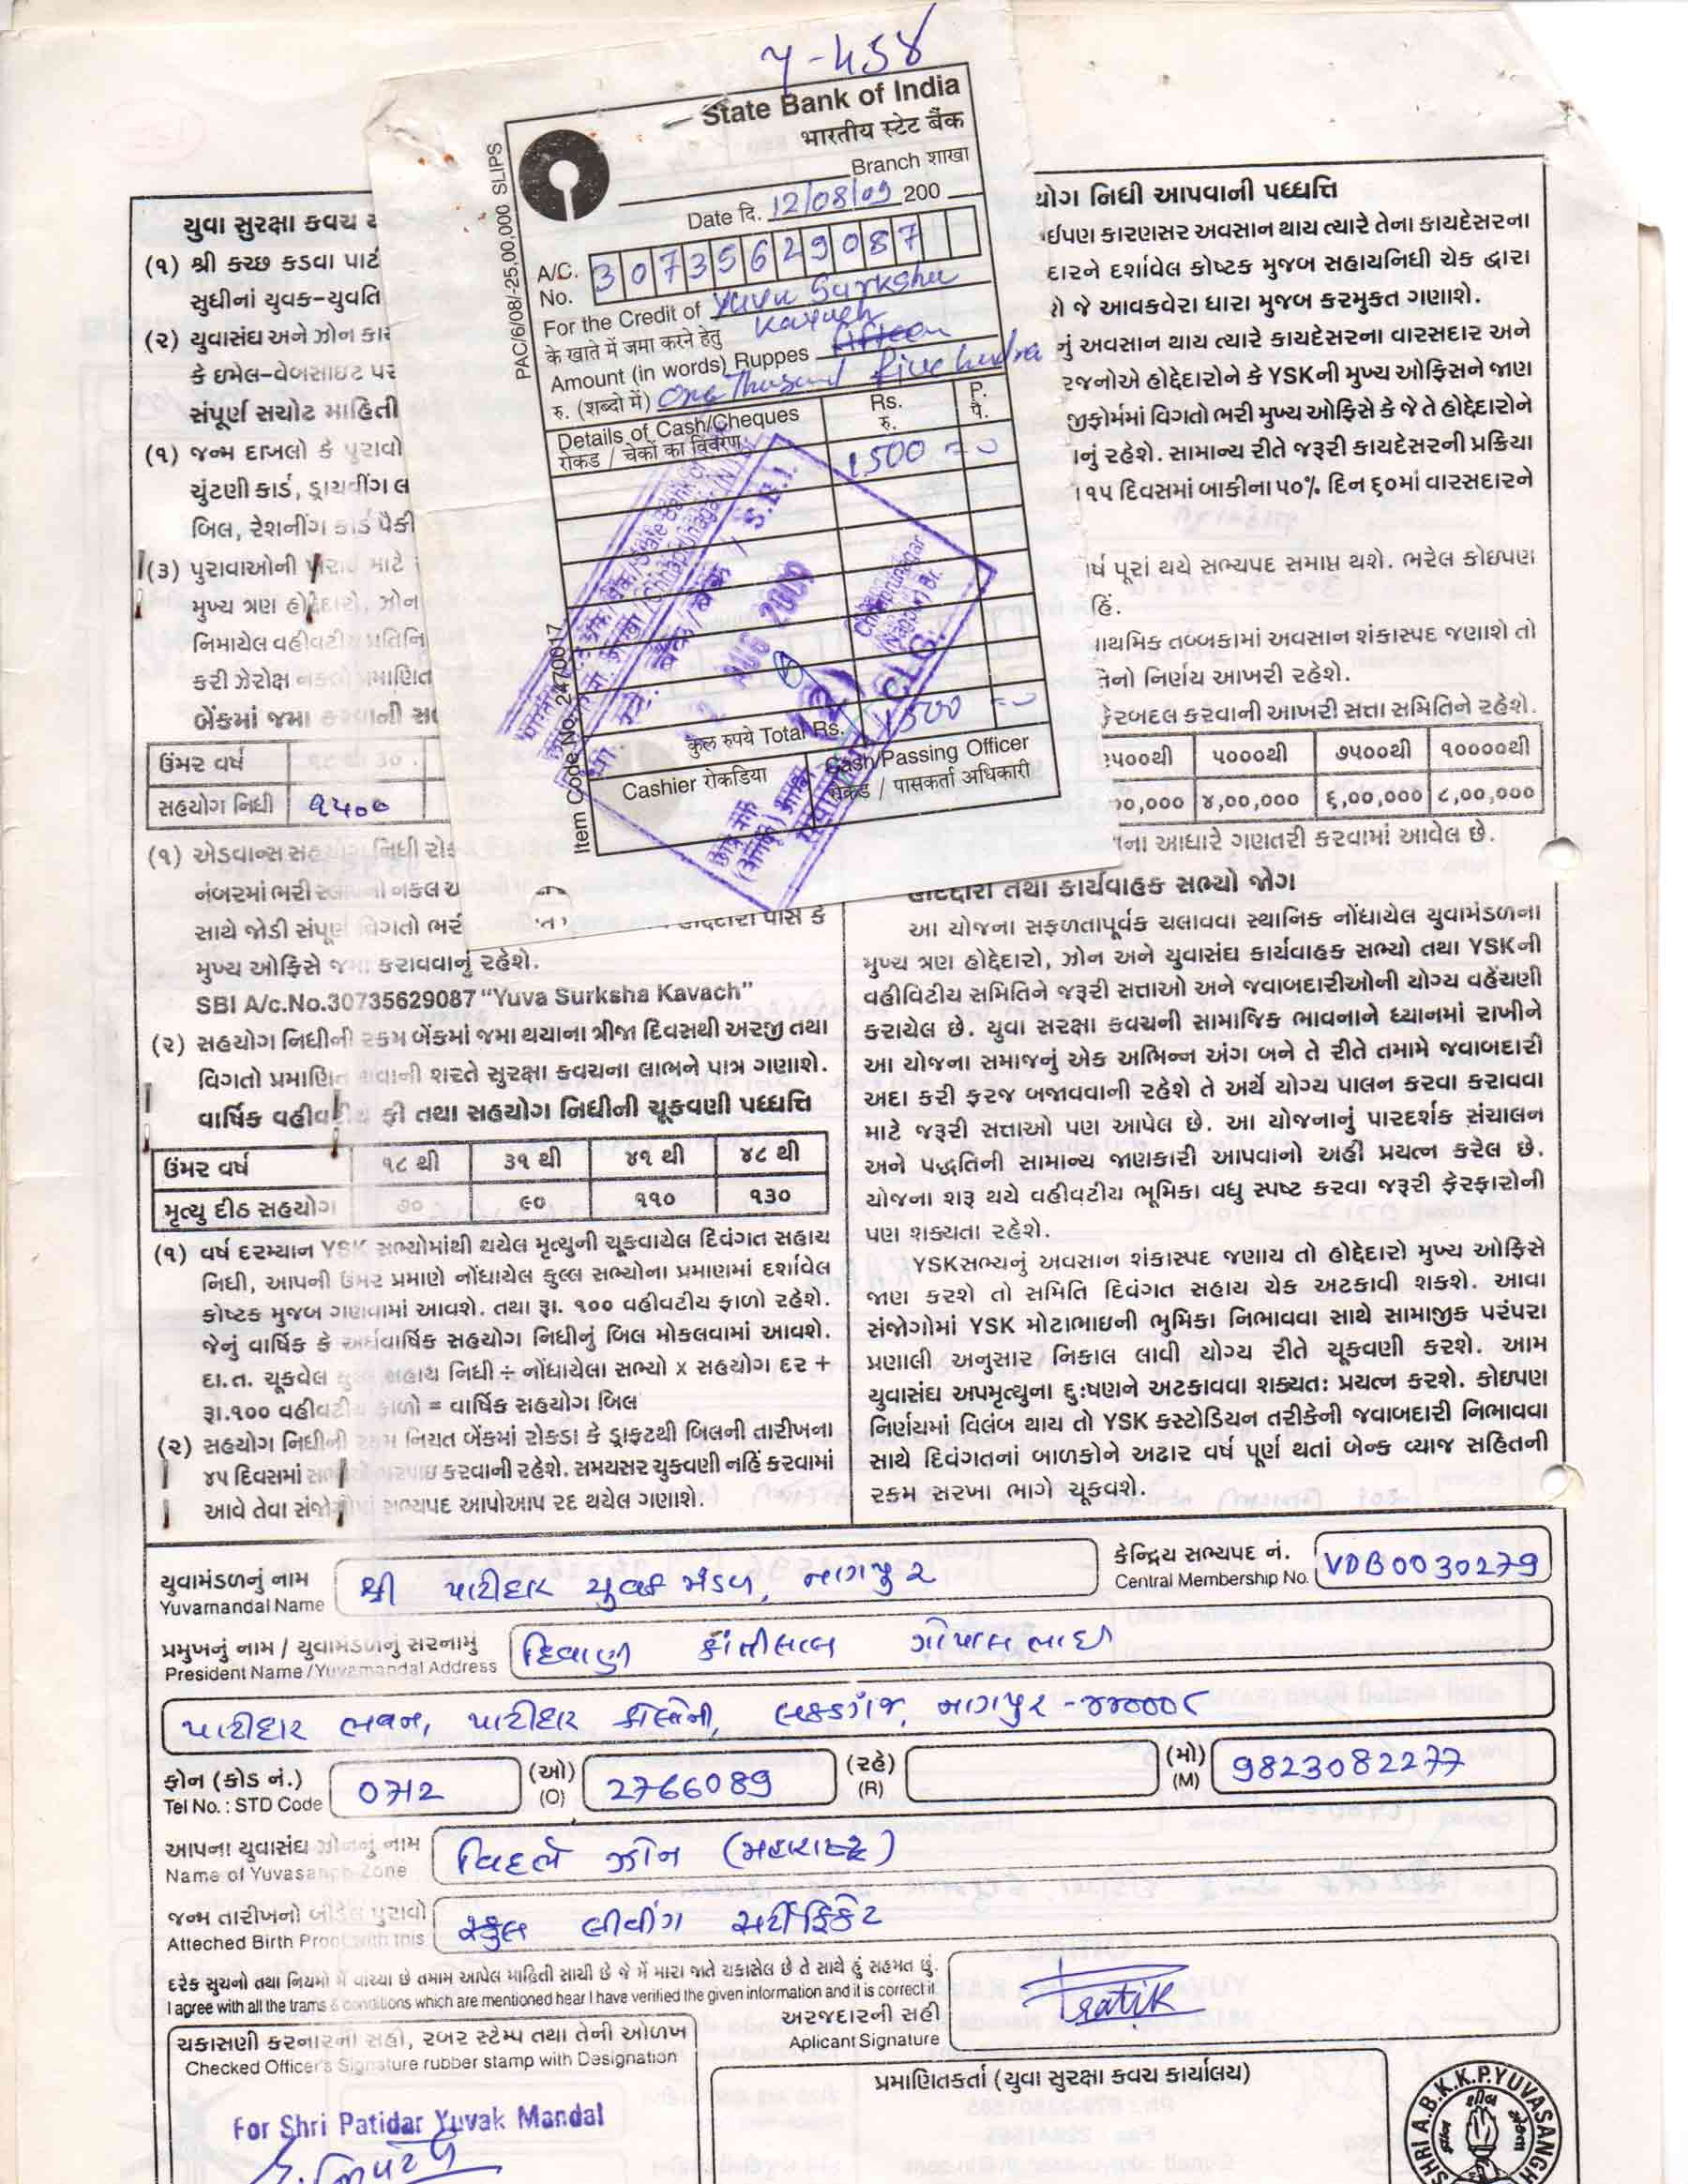 ૫-૫૬૪
State Bank of India
भारतीय स्टेट बैंक
Branch शाखा
Date दि. 12/08/09 200
A/C. No. 30735629087
For the Credit of Yuva Surksha
के खाते में जमा करने हेतु Kavach
Amount (in words) Ruppes
रु. (शब्दो में) One Thousand Five hundra
Details of Cash/Cheques Rs. P.
रोकड / चेकों का विवरण रु. पै.
1500 = 0
कुल रुपये Total Rs. 1500 = 0
Cashier रोकडिया
Cash/Passing Officer
रोकड / पासकर्ता अधिकारी
PAC/6/08/-25,00,000 SLIPS
Item Code No. 2470017
S.B.I.
AUG 2009
12
CLG.
યુવા સુરક્ષા કવચ
(૧) શ્રી કચ્છ કડવા
સુધીનાં યુવક-યુવતિ
(૨) યુવાસંઘ અને ઝોન
કે ઇમેલ-વેબસાઇટ પર
સંપૂર્ણ સચોટ માહિતી
(૧) જન્મ દાખલો કે પુરાવો
ચુંટણી કાર્ડ, ડ્રાયવીંગ
બિલ, રેશનીંગ કાર્ડ પૈકી
(૩) પુરાવાઓની માટે
મુખ્ય ત્રણ હોદ્દેદારો, ઝોન
નિમાયેલ વહીવટીય
કરી ઝેરોક્ષ નકલો
બેંકમાં જમા કરવાની
ઉંમર વર્ષ ૧૮ થી ૩૦
સહયોગ નિધી ૧૫૦૦
(૧) એડવાન્સ સહયોગ નિધી
નંબરમાં ભરી નકલ
સાથે જોડી સંપૂર્ણ વિગતો પાસે કે
મુખ્ય ઓફિસે જમા કરાવવાનું રહેશે.
SBI A/c.No.30735629087 "Yuva Surksha Kavach"
(૨) સહયોગ નિધીની રકમ બેંકમાં જમા થયાના ત્રીજા દિવસથી અરજી તથા
વિગતો પ્રમાણિત થવાની શરતે સુરક્ષા કવચના લાભને પાત્ર ગણાશે.
વાર્ષિક વહીવટીય ફી તથા સહયોગ નિધીની ચૂકવણી પધ્ધત્તિ
ઉંમર વર્ષ ૧૮ થી ૩૧ થી ૪૧ થી ૪૮ થી
મૃત્યુ દીઠ સહયોગ ૭૦ ૯૦ ૧૧૦ ૧૩૦
(૧) વર્ષ દરમ્યાન YSK સભ્યોમાંથી થયેલ મૃત્યુની ચૂકવાયેલ દિવંગત સહાય
નિધી, આપની ઉંમર પ્રમાણે નોંધાયેલ કુલ્લ સભ્યોના પ્રમાણમાં દર્શાવેલ
કોષ્ટક મુજબ ગણવામાં આવશે. તથા રૂા. ૧૦૦ વહીવટીય ફાળો રહેશે.
જેનું વાર્ષિક કે અર્ધવાર્ષિક સહયોગ નિધીનું બિલ મોકલવામાં આવશે.
દા.ત. ચૂકવેલ સહાય નિધી ÷ નોંધાયેલા સભ્યો x સહયોગ દર +
રૂા.૧૦૦ વહીવટીય ફાળો = વાર્ષિક સહયોગ બિલ
(૨) સહયોગ નિધીની રકમ નિયત બેંકમાં રોકડા કે ડ્રાફ્ટથી બિલની તારીખના
૪૫ દિવસમાં ભરપાઇ કરવાની રહેશે. સમયસર ચુકવણી નહિં કરવામાં
આવે તેવા સંજોગોમાં સભ્યપદ આપોઆપ રદ થયેલ ગણાશે.
યોગ નિધી આપવાની પધ્ધત્તિ
ઈપણ કારણસર અવસાન થાય ત્યારે તેના કાયદેસરના
દારને દર્શાવેલ કોષ્ટક મુજબ સહાયનિધી ચેક દ્વારા
જે આવકવેરા ધારા મુજબ કરમુક્ત ગણાશે.
નું અવસાન થાય ત્યારે કાયદેસરના વારસદાર અને
રજનોએ હોદ્દેદારોને કે YSKની મુખ્ય ઓફિસને જાણ
જીફોર્મમાં વિગતો ભરી મુખ્ય ઓફિસે કે જે તે હોદ્દેદારોને
નું રહેશે. સામાન્ય રીતે જરૂરી કાયદેસરની પ્રક્રિયા
૧૫ દિવસમાં બાકીના ૫૦% દિન ૬૦માં વારસદારને
ર્ષ પૂરાં થયે સભ્યપદ સમાપ્ત થશે. ભરેલ કોઇપણ
હિં.
ાથમિક તબ્બકામાં અવસાન શંકાસ્પદ જણાશે તો
તેનો નિર્ણય આખરી રહેશે.
ફેરબદલ કરવાની આખરી સત્તા સમિતિને રહેશે.
૨૫૦૦થી ૫૦૦૦થી ૭૫૦૦થી ૧૦૦૦૦થી
૦૦,૦૦૦ ૪,૦૦,૦૦૦ ૬,૦૦,૦૦૦ ૮,૦૦,૦૦૦
ના આધારે ગણતરી કરવામાં આવેલ છે.
હોદ્દેદારો તથા કાર્યવાહક સભ્યો જોગ
આ યોજના સફળતાપૂર્વક ચલાવવા સ્થાનિક નોંધાયેલ યુવામંડળના
મુખ્ય ત્રણ હોદ્દેદારો, ઝોન અને યુવાસંઘ કાર્યવાહક સભ્યો તથા YSKની
વહીવિટીય સમિતિને જરૂરી સત્તાઓ અને જવાબદારીઓની યોગ્ય વહેંચણી
કરાયેલ છે. યુવા સરક્ષા કવચની સામાજિક ભાવનાને ધ્યાનમાં રાખીને
આ યોજના સમાજનું એક અભિન્ન અંગ બને તે રીતે તમામે જવાબદારી
અદા કરી ફરજ બજાવવાની રહેશે તે અર્થે યોગ્ય પાલન કરવા કરાવવા
માટે જરૂરી સત્તાઓ પણ આપેલ છે. આ યોજનાનું પારદર્શક સંચાલન
અને પદ્ધતિની સામાન્ય જાણકારી આપવાનો અહીં પ્રયત્ન કરેલ છે.
યોજના શરૂ થયે વહીવટીય ભૂમિકા વધુ સ્પષ્ટ કરવા જરૂરી ફેરફારોની
પણ શક્યતા રહેશે.
YSKસભ્યનું અવસાન શંકાસ્પદ જણાય તો હોદ્દેદારો મુખ્ય ઓફિસે
જાણ કરશે તો સમિતિ દિવંગત સહાય ચેક અટકાવી શકશે. આવા
સંજોગોમાં YSK મોટાભાઇની ભુમિકા નિભાવવા સાથે સામાજીક પરંપરા
પ્રણાલી અનુસાર નિકાલ લાવી યોગ્ય રીતે ચૂકવણી કરશે. આમ
યુવાસંઘ અપમૃત્યુના દુઃષણને અટકાવવા શક્યતઃ પ્રયત્ન કરશે. કોઇપણ
નિર્ણયમાં વિલંબ થાય તો YSK કસ્ટોડિયન તરીકેની જવાબદારી નિભાવવા
સાથે દિવંગતનાં બાળકોને અઢાર વર્ષ પૂર્ણ થતાં બેન્ક વ્યાજ સહિતની
રકમ સરખા ભાગે ચૂકવશે.
યુવામંડળનું નામ શ્રી પાટીદાર યુવક મંડળ, નાગપુર
Yuvamandal Name
કેન્દ્રિય સભ્યપદ નં. VDB0030279
Central Membership No.
પ્રમુખનું નામ / યુવામંડળનું સરનામું દિવાણી કાંતીલાલ ગોપાલભાઈ
President Name/Yuvamandal Address
પાટીદાર ભવન, પાટીદાર કોલોની, લકડગંજ, નાગપુર -૪૪૦૦૦૮
ફોન (કોડ નં.) 0712 (ઓ) 2766089 (રહે) (મો) 9823082277
Tel No. : STD Code (O) (R) (M)
આપના યુવાસંઘ ઝોનનું નામ વિદર્ભ ઝોન (મહારાષ્ટ્ર)
Name of Yuvasangh Zone
જન્મ તારીખનો બીડેલ પુરાવો સ્કુલ લીવીંગ સર્ટીફિકેટ
Atteched Birth Proof with this
દરેક સુચનો તથા નિયમો મેં વાંચ્યા છે તમામ આપેલ માહિતી સાચી છે જે મેં મારા જાતે ચકાસેલ છે તે સાથે હું સહમત છું.
I agree with all the trams & conditions which are mentioned hear I have verified the given information and it is correct it.
અરજદારની સહી
Aplicant Signature
Pratik
ચકાસણી કરનારની સહી, રબર સ્ટેમ્પ તથા તેની ઓળખ
Checked Officer's Signature rubber stamp with Designation
For Shri Patidar Yuvak Mandal
પ્રમાણિતકર્તા (યુવા સુરક્ષા કવચ કાર્યાલય)
SHRI A.B.K.K.P.YUVASANGH